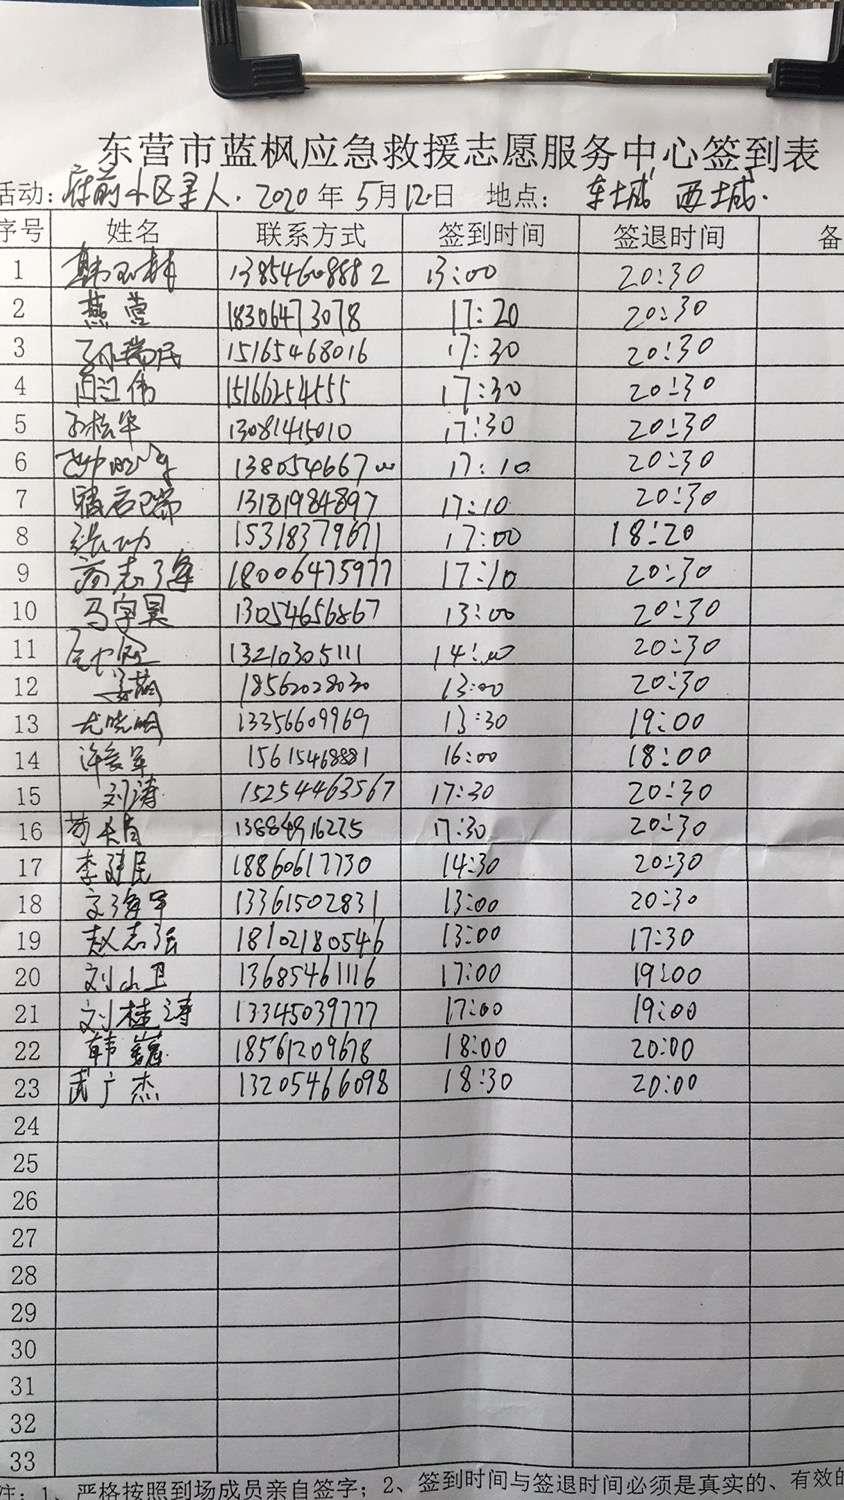 东营市蓝枫应急救援志愿服务中心签到表
活动：府前小区寻人. 2020 年 5 月 12 日 地点： 东城 西城.
序号 姓名 联系方式 签到时间 签退时间 备
1 韩玉林 13854608882 13:00 20:30
2 燕营 18306473078 17:20 20:30
3 孙瑞民 15165468016 17:30 20:30
4 15166254555 17:30 20:30
5 孙松华 13081415010 17:30 20:30
6 138054667 17:10 20:30
7 13181984897 17:10 20:30
8 张功 15318379671 17:00 18:20
9 商志海 18006475977 17:10 20:30
10 马宇昊 13054656867 13:00 20:30
11 13210305111 14:00 20:30
12 18562028030 13:00 20:30
13 尤晓明 13356609969 13:30 19:00
14 许爱军 15615468881 16:00 18:00
15 刘涛 15254463567 17:30 20:30
16 13884916225 17:30 20:30
17 李建民 18860617730 14:30 20:30
18 文海军 13361502831 13:00 20:30
19 赵志强 18102180546 13:00 17:30
20 刘小卫 13685461116 17:00 19:00
21 刘桂涛 13345039777 17:00 19:00
22 韩巍 18561209678 18:00 20:00
23 武广杰 13205466098 18:30 20:00
24
25
26
27
28
29
30
31
32
33
注：1、严格按照到场成员亲自签字；2、签到时间与签退时间必须是真实的、有效的